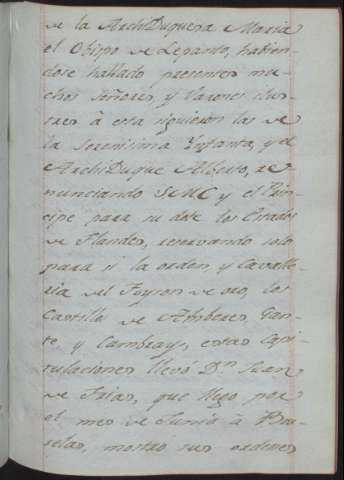 de la ArchiDuquesa Maria
el Obispo de Lepanto, habien-
dose hallado presentes mu-
chos señores, y Varones ilus-
tres à esta siguieron las de
la Serenisima Ynfanta, y el
ArchiDuque Alberto, re-
nunciando SMC y el Prin-
cipe para su dote los Estados
de Flandes, reservando solo
para si la orden, y Cavalle-
ria del Toyson de oro, los
Castillos de Amberes Gan-
te, y Cambray, estas Capi-
tulaciones llevó Dn Juan
de Frias, que llego por
el mes de Junio à Bru-
selas, mostró sus ordenes